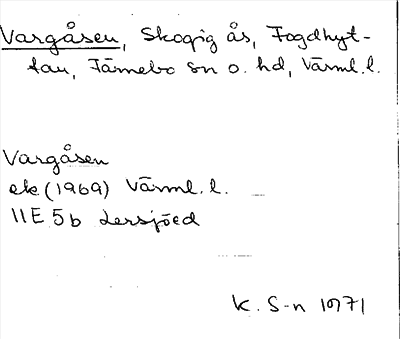 Vargåsen, Skogig ås, Fogdhyt-
tan, Färnebo sn o. hd, Värml. l.
Vargåsen
ek (1969) Värml. l.
11E 5b Lersjöed
K. S-n 1971